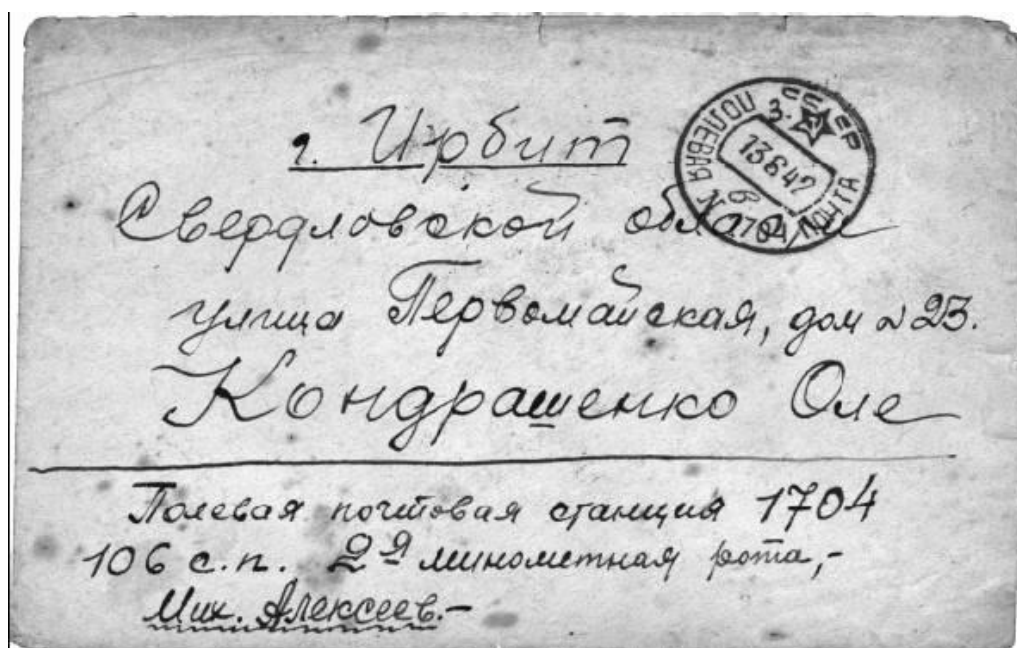 г. Ирбит
Свердловской области
улица Первомайская, дом № 23.
Кондрашенко Оле
Полевая почтовая станция 1704
106 с.п. 2я минометная рота,-
Мих. Алексеев.-
СССР
ПОЛЕВАЯ ПОЧТА
N 1704
13 6 42